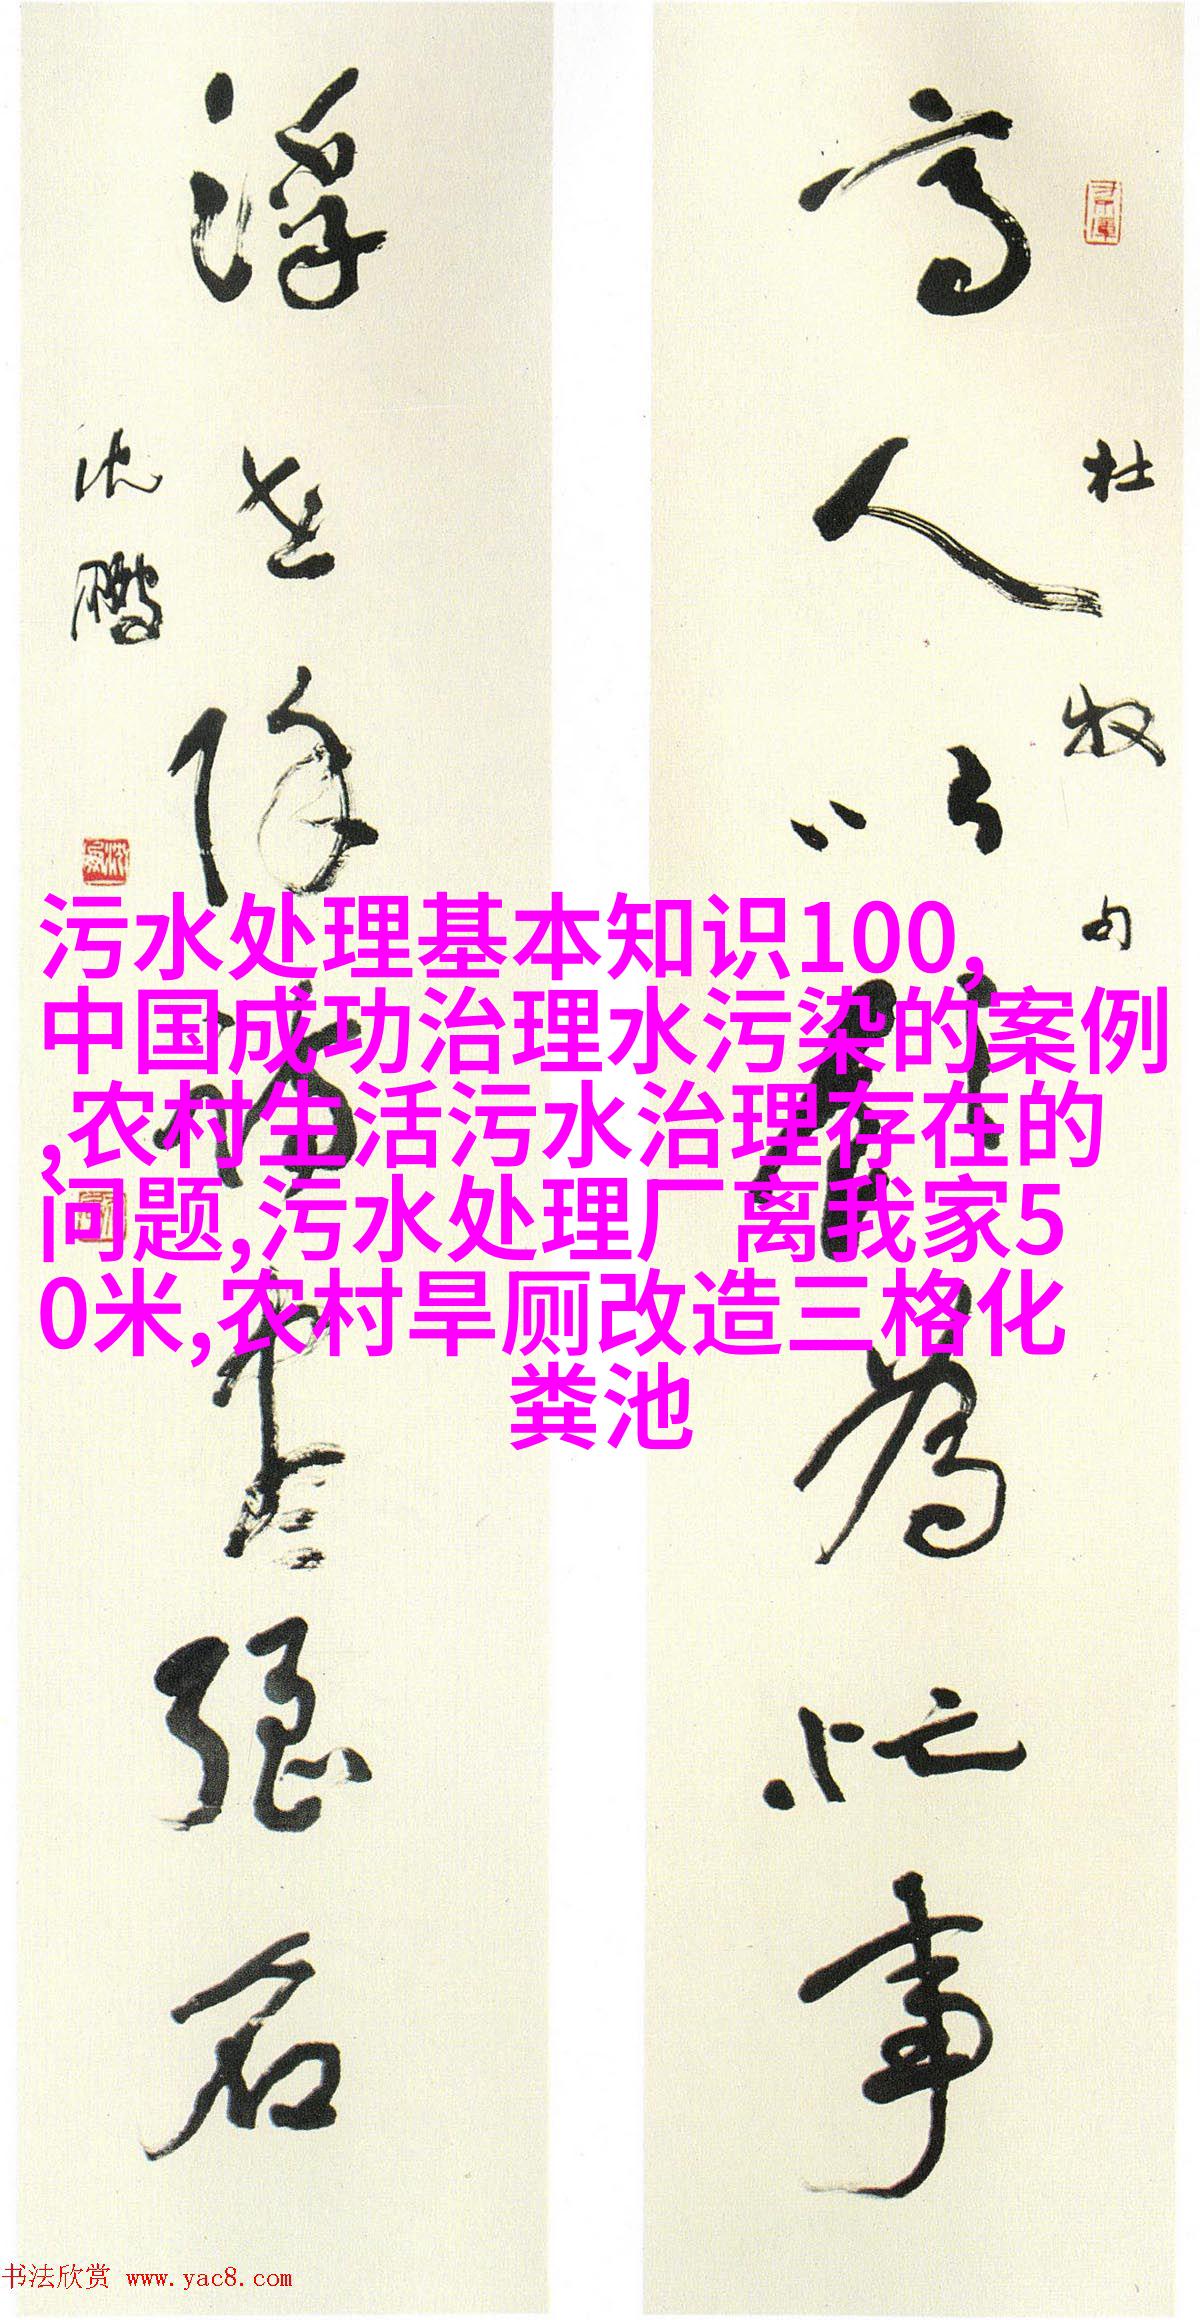 杜牧句
高人以為忙事
浮世除詩尽强名
沈鵬
污水处理基本知识100,
中国成功治理水污染的案例
,农村生活污水治理存在的
问题,污水处理厂离我家5
0米,农村旱厕改造三格化
粪池
书法欣赏 www.yac8.com